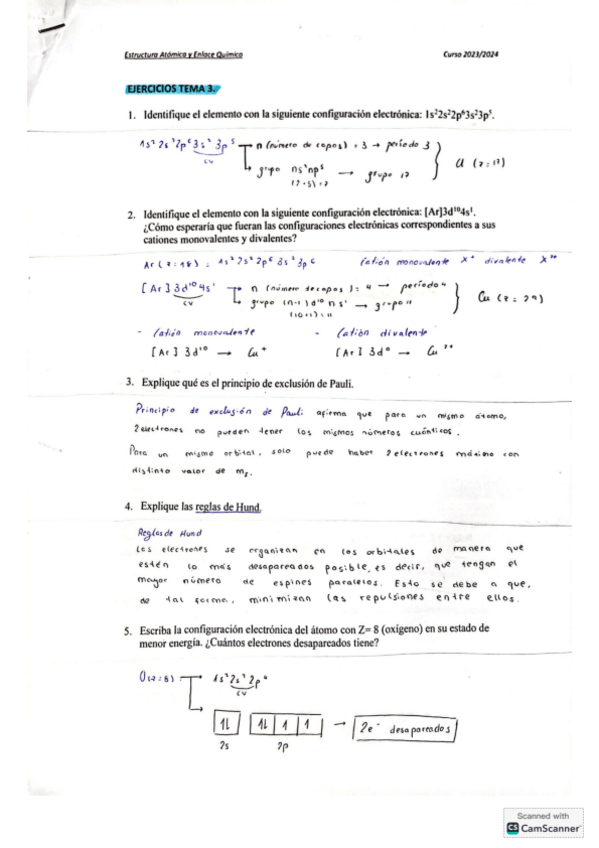 Estructura Atómica y Enlace Químico Curso 2023/2024
EJERCICIOS TEMA 3.
1. Identifique el elemento con la siguiente configuración electrónica: 1s²2s²2p⁶3s²3p⁵.
1s² 2s² 2p⁶ 3s² 3p⁵ → n (número de capas) = 3 → período 3
cv
grupo ns²np⁵ → grupo 17
(2+5) = 7
Cl (Z = 17)
2. Identifique el elemento con la siguiente configuración electrónica: [Ar]3d¹⁰4s¹.
¿Cómo esperaría que fueran las configuraciones electrónicas correspondientes a sus
cationes monovalentes y divalentes?
Ar (Z = 18) : 1s² 2s² 2p⁶ 3s² 3p⁶ Catión monovalente X⁺ divalente X²⁺
[Ar] 3d¹⁰ 4s¹ → n (número de capas) = 4 → período 4
cv
grupo (n-1)d¹⁰ ns¹ → grupo 11
(10+1) = 11
Cu (Z = 29)
- Catión monovalente - Catión divalente
[Ar] 3d¹⁰ → Cu⁺ [Ar] 3d⁹ → Cu²⁺
3. Explique qué es el principio de exclusión de Pauli.
Principio de exclusión de Pauli afirma que para un mismo átomo,
2 electrones no pueden tener los mismos números cuánticos.
Para un mismo orbital, solo puede haber 2 electrones máximo con
distinto valor de ms.
4. Explique las reglas de Hund.
Reglas de Hund
Los electrones se organizan en los orbitales de manera que
estén lo más desapareados posible, es decir, que tengan el
mayor número de espines paralelos. Esto se debe a que,
de tal forma, minimizan las repulsiones entre ellos.
5. Escriba la configuración electrónica del átomo con Z= 8 (oxígeno) en su estado de
menor energía. ¿Cuántos electrones desapareados tiene?
O (Z = 8) → 1s² 2s² 2p⁴
cv
1l 1l 1 1 → 2e⁻ desapareados
2s 2p
Scanned with
CS CamScanner